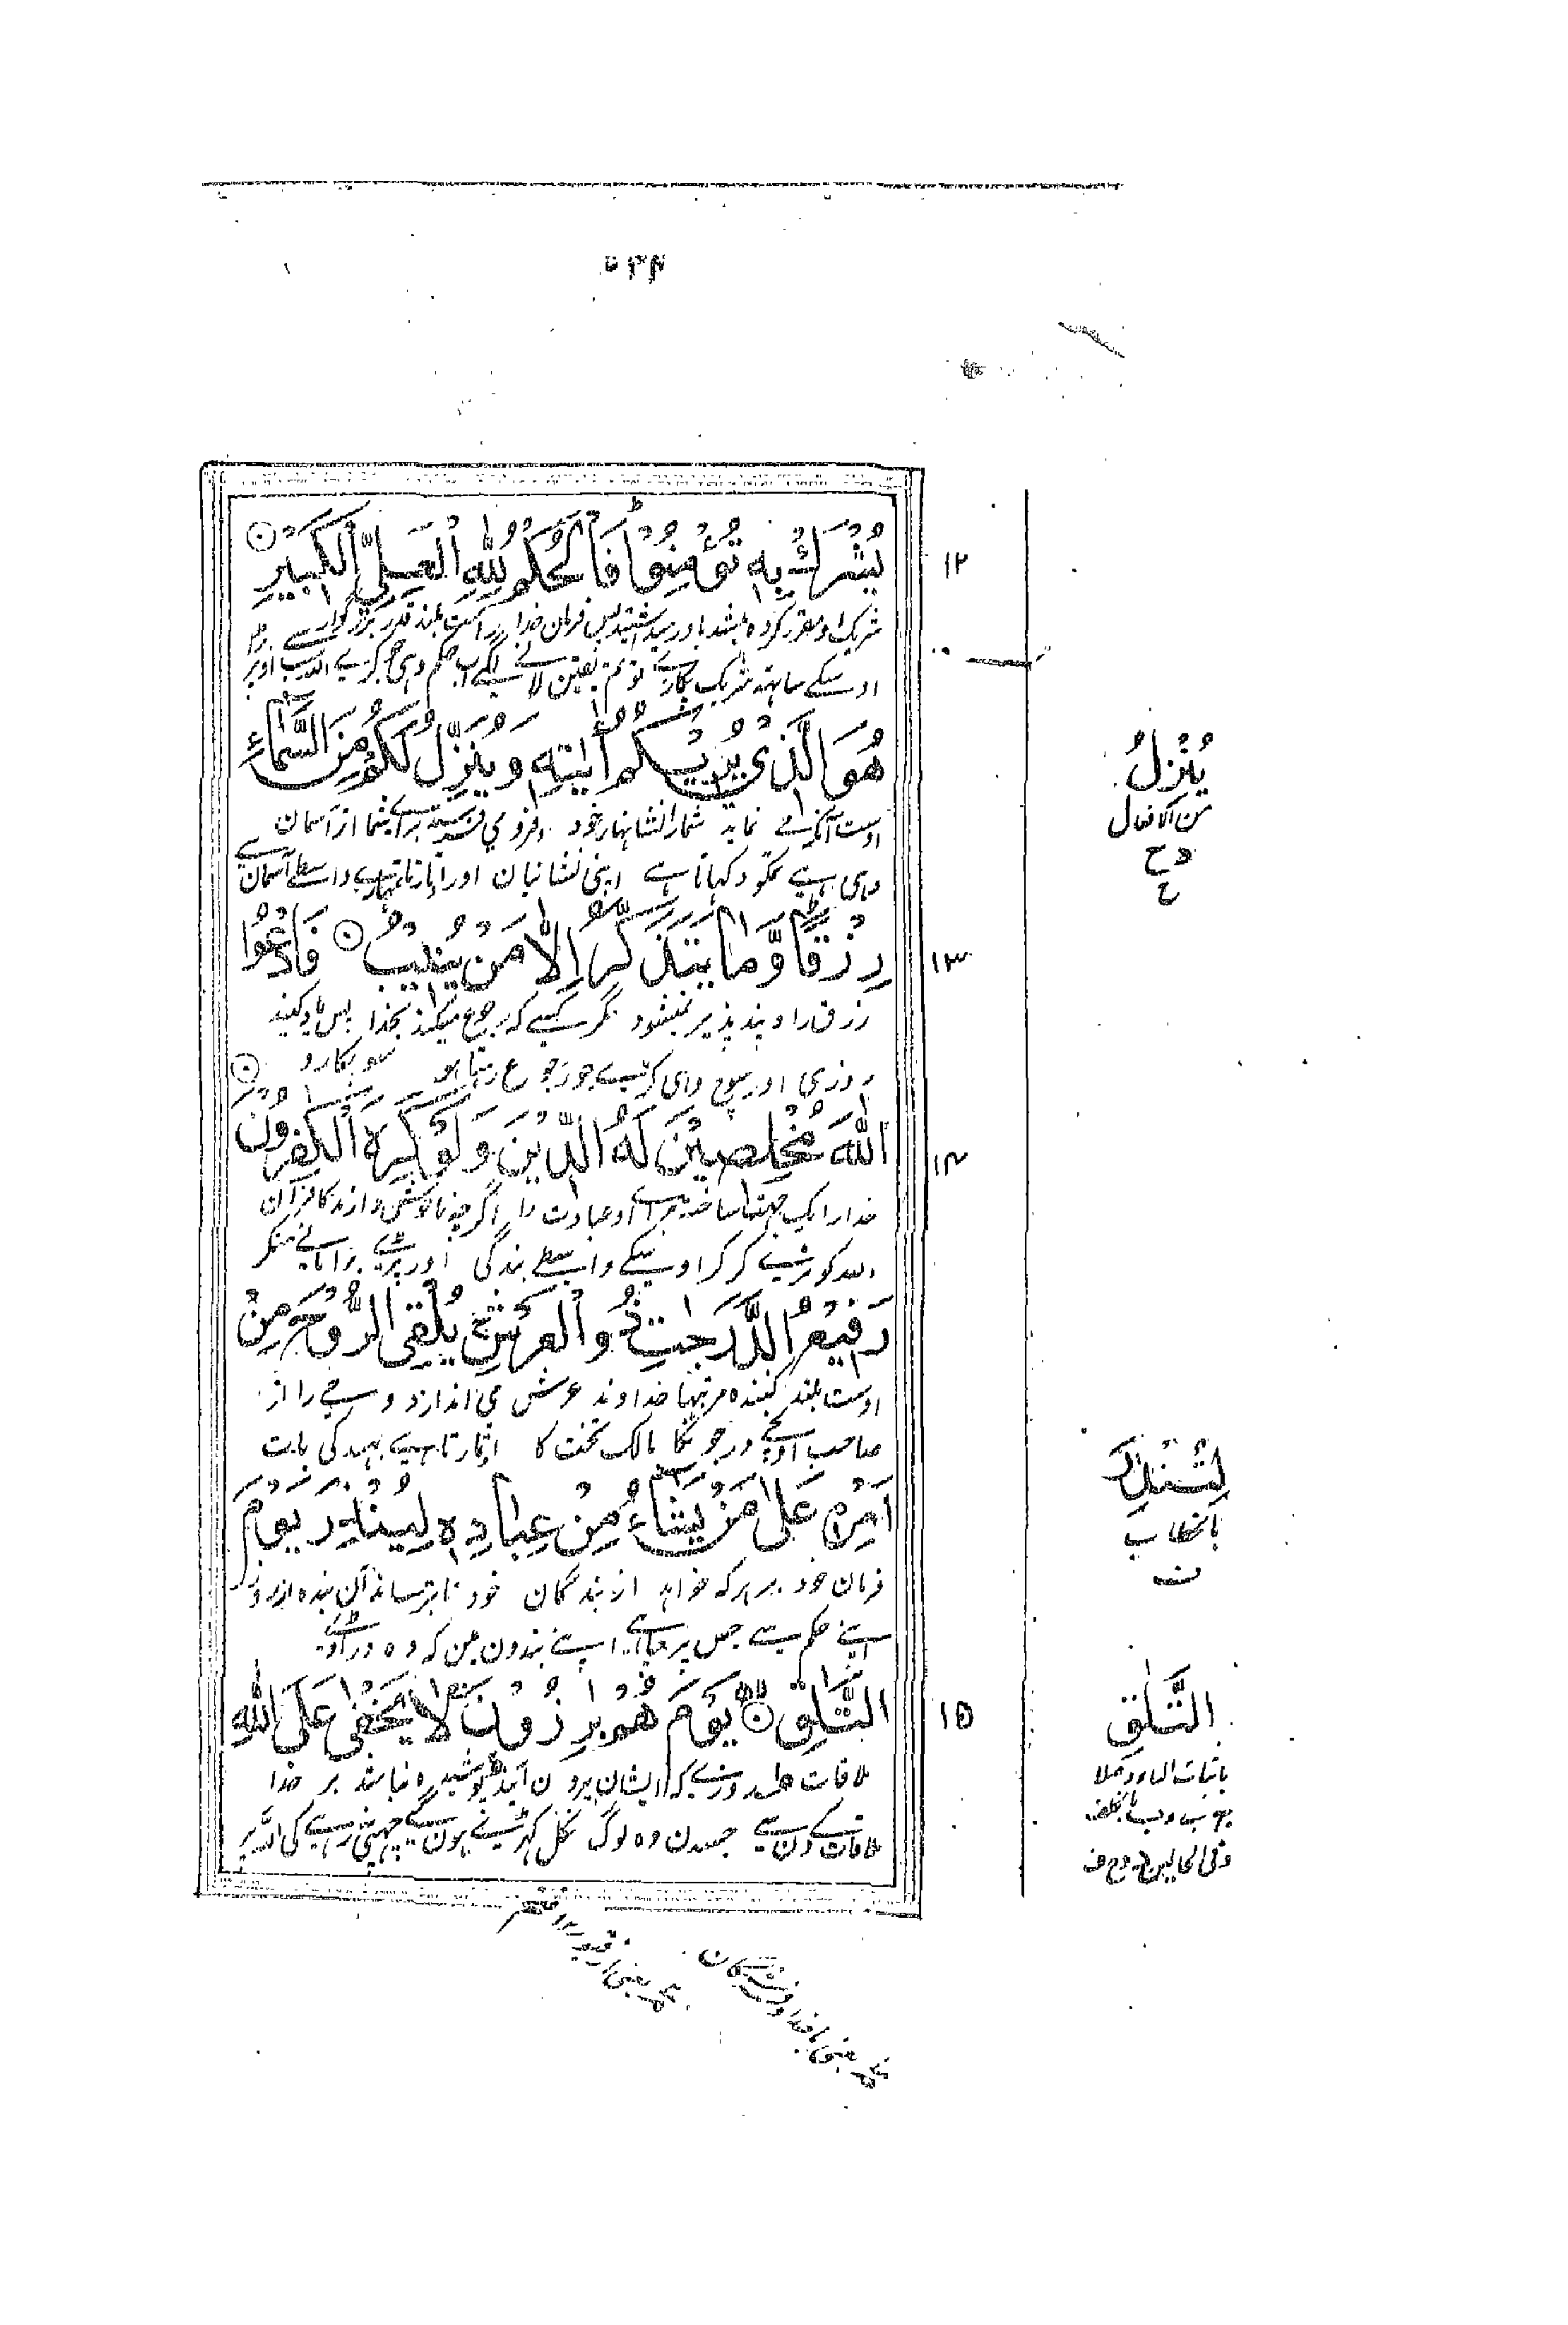 ۵۳۴
يُشْرَكْ بِهٖ تُؤْمِنُوْا فَالْحُكْمُ لِلّٰهِ الْعَلِيِّ الْكَبِيْرِ
۱۲
شریک او مقرر کرده باور میداشتید پس فرمان خدا راست بلند قدر بزرگوار
اوسکے ساتہہ شریک پکارے تو تم یقین لانے لگے اب حکم وہی جو کرے اللہ سب اوپر
هُوَ الَّذِيْ يُرِيْكُمْ اٰيٰتِهٖ وَيُنَزِّلُ لَكُمْ مِنَ السَّمَاءِ
اوست آنکہ می نماید شمارا نشانہاء خود و فرو می فرستد برای شما از آسمان
وہی ہے تمکو دکہاتا ہے اپنی نشانیان اور اوتارتا تمہارے واسطے آسمان سے
رِزْقًا وَّمَا يَتَذَكَّرُ اِلَّا مَنْ يُنِيْبُ فَادْعُوا
۱۳
رزق را و پند پذیر نمیشود مگر کسے کہ رجوع میکند بخدا پس یاد کنید
روزی اور سوچ وہی کرے جو رجوع رہتا ہو سو پکارو
اللّٰهَ مُخْلِصِيْنَ لَهُ الدِّيْنَ وَلَوْ كَرِهَ الْكٰفِرُوْنَ
۱۴
خدا را یک جہت ساختہ برائے او عبادت را اگرچہ ناخوش دارند کافران
اللہ کو نری کر کر اوسکے واسطے بندگی اور پڑے برا مانے منکر
رَفِيْعُ الدَّرَجٰتِ ذُو الْعَرْشِ يُلْقِى الرُّوْحَ مِنْ
اوست بلند کننده مرتبہا خداوند عرش می اندازد وحی را از
صاحب اونچے درجونکا مالک تخت کا اوتارتا ہے بہید کی بات
اَمْرِهٖ عَلٰى مَنْ يَّشَاءُ مِنْ عِبَادِهٖ لِيُنْذِرَ يَوْمَ
فرمان خود بر ہر کہ خواہد از بندگان خود تا بترساند آن بندہ از روز
اپنے حکم سے جس پر چاہے اپنے بندون مین کہ وہ ڈراوے
التَّلٰقِ يَوْمَ هُمْ بٰرِزُوْنَ لَا يَخْفٰى عَلَى اللّٰهِ
۱۵
ملاقات روزے کہ ایشان بیرون آیند پوشیدہ نباشد بر خدا
ملاقات کے دن سے جسدن وہ لوگ نکل کہڑے ہونگے چہپی نہ رہے گی اللہ پر
يُنْزِلُ
من الافعال
د ح
ع
لِتُنْذِرَ
بالخطاب
التَّلٰقِ
باثبات الیاء وصلا